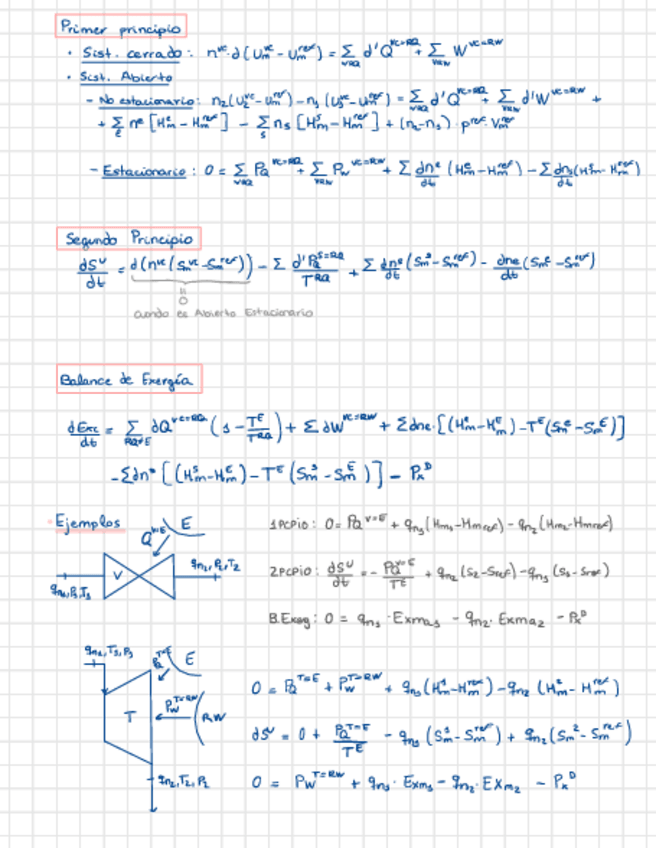 Primer principio
· Sist. cerrado: n^vc·d(U_m^vc − U_m^ref) = Σ_∀RQ d'Q^vc=RQ + Σ_∀RW W^vc=RW
· Sist. Abierto
- No estacionario: n₂(U₂^vc − U_m^ref) − n₁(U₁^vc − U_m^ref) = Σ_∀RQ d'Q^vc=RQ + Σ_∀RW d'W^vc=RW +
+ Σ_E n^e [H_m^e − H_m^ref] − Σ_S n_s [H_m^s − H_m^ref] + (n₂ − n₁)·p^ref·V_m^ref
- Estacionario: 0 = Σ_∀RQ P_Q^vc=RQ + Σ_∀RW P_W^vc=RW + Σ dn^e/dt (H_m^e − H_m^ref) − Σ dn_s/dt (H_m^s − H_m^ref)
Segundo Principio
dS^U/dt = d(n^vc(S_m^vc − S_m^ref)) − Σ d'P_Q^S=RQ/T^RQ + Σ dn^s/dt (S_m^s − S_m^ref) − dne/dt (S_m^e − S_m^ref)
=
0
Cuando es Abierto Estacionario
Balance de Exergía
dExc/dt = Σ_RQ≠E dQ^vc=RQ (1 − T^E/T^RQ) + Σ dW^vc=RW + Σdne·[(H_m^e − H_m^E) − T^E(S_m^e − S_m^E)]
− Σdn^s [(H_m^s − H_m^E) − T^E (S_m^s − S_m^E)] − P_x^D
Ejemplos
Q^V=E E
V
q_n1, P₁, T₁
q_n2, P₂, T₂
1PCPIO: 0 = P_Q^V=E + q_n1(H_m1 − H_mref) − q_n2(H_m2 − H_mref)
2PCPIO: dS^U/dt = − P_Q^V=E/T^E + q_n2(S₂ − S_ref) − q_n1(S₁ − S_ref)
B.Exerg: 0 = q_n1·Exma₁ − q_n2·Exma₂ − P_x^D
q_n1, T₁, P₁
P_Q^T=E E
T
P_W^T=RW
RW
q_n2, T₂, P₂
0 = P_Q^T=E + P_W^T=RW + q_n1(H_m^1 − H_m^ref) − q_n2 (H_m^2 − H_m^ref)
dS^U = 0 + P_Q^T=E/T^E − q_n1 (S_m^1 − S_m^ref) + q_n2(S_m^2 − S_m^ref)
0 = P_W^T=RW + q_n1·Exm₁ − q_n2·Exm₂ − P_x^D